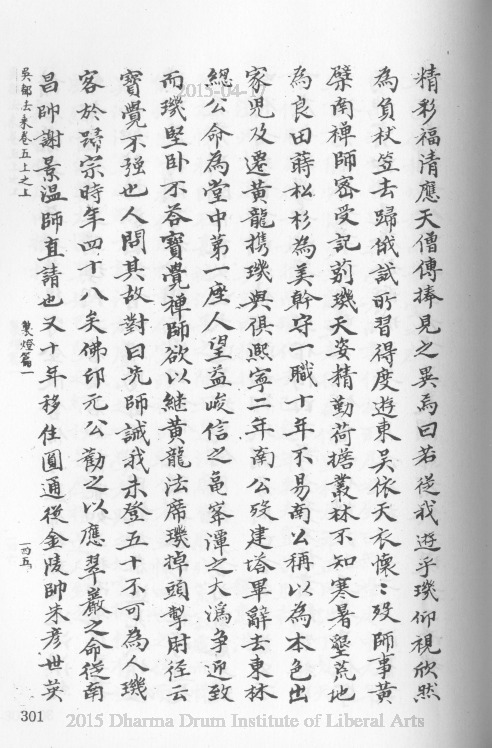 精彩福清應天僧傳捧見之異焉曰若從我遊乎璣仰視欣然
為負杖笠去歸俄試所習得度遊東吳依天衣懷：歿師事黃
檗南禪師密受記莂璣天姿精勤荷擔叢林不知寒暑墾荒地
為良田蒔松杉為美幹守一職十年不易南公稱以為本色出
家兒及遷黃龍携璣與俱熙寧二年南公歿建塔畢辭去東林
總公命為堂中第一座人望益峻信之龜峯潭之大溈爭迎致
而璣堅卧不荅寶覺禪師欲以継黃龍法席璣掉頭掣肘径云
寶覺不强也人問其故對曰先師誡我未登五十不可為人璣
客於歸宗時年四十八矣佛印元公勸之以應翠巖之命從南
昌帥謝景溫師直請也又十年移住圓通從金陵帥朱彥世英
吳都法乘卷五上之上
製燈篇一
一四五
301
2015-04-
2015 Dharma Drum Institute of Liberal Arts